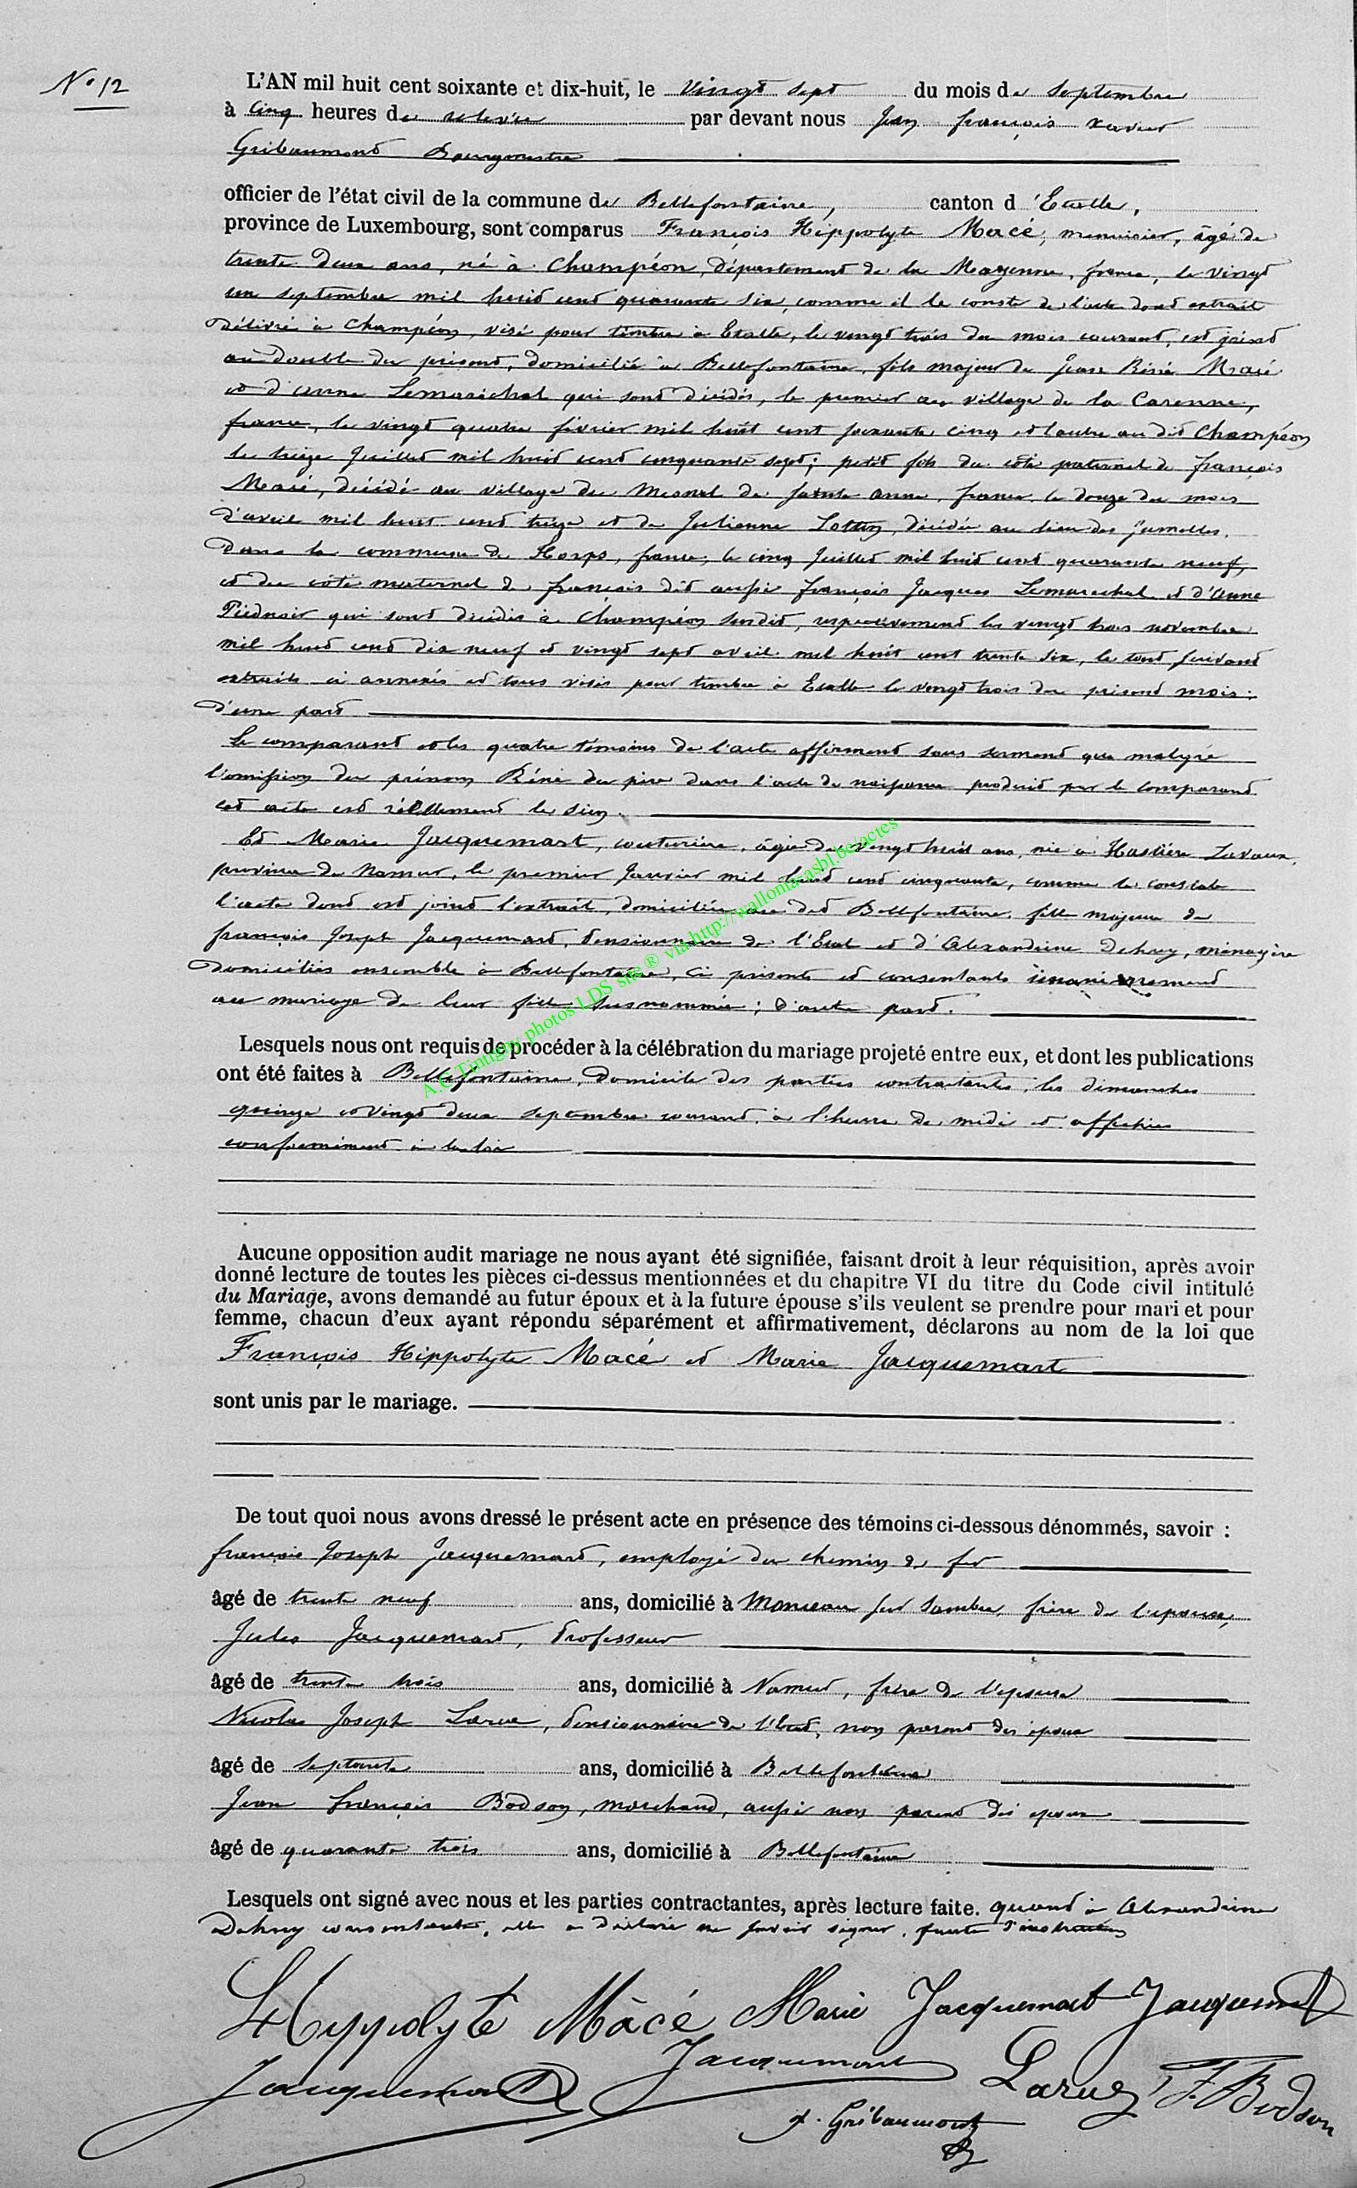 N° 12
L'AN mil huit cent soixante et dix-huit, le vingt sept du mois de septembre
à cinq heures de relevée par devant nous Jean françois xavier
Gribaumont Bourgmestre
officier de l'état civil de la commune de Bellefontaine, canton d'Etalle,
province de Luxembourg, sont comparus François Hippolyte Macé, menuisier, âgé de
trente deux ans, né à Champéon, département de la Mayenne, france, le vingt
un septembre mil huit cent quarante six, comme il le conste de l'acte dont extrait
délivré à Champéon, visé pour timbre à Etalle, le vingt trois du mois courant, est joint
au double du présent, domicilié à Bellefontaine, fils majeur de Jean Réné Macé
et d'anne Lemaréchal qui sont décédés, le premier au village de la Carenne,
france, le vingt quatre février mil huit cent soixante cinq et l'autre au dit Champéon
le treize Juillet mil huit cent cinquante sept; petit fils du côté paternel de françois
Macé, décédé au village du Mesnil de sainte anne, france, le douze du mois
d'avril mil huit cent treize et de Julienne Lottin, décédée au lieu des Jumelles,
dans la commune de Horps, france, le cinq Juillet mil huit cent quarante neuf,
et du côté maternel de françois dit aussi françois Jacques Lemarechal et d'anne
Piednoir qui sont décédés à Champéon susdit, respectivement les vingt trois novembre
mil huit cent dix neuf et vingt sept avril mil huit cent trente six, le tout suivant
extraits ci annexés et tous visés pour timbre à Etalle le vingt trois du présent mois;
d'une part
Le comparant et les quatre témoins de l'acte affirment sous serment que malgré
l'omission du prénom Réné du père dans l'acte de naissance produit par le comparant
cet acte est réellement le sien.
Et Marie Jacquemart, couturière, âgée de vingt huit ans, née à Hastière Lavaux,
province de Namur, le premier Janvier mil huit cent cinquante, comme le constate
l'acte dont est joint l'extrait, domiciliée au dit Bellefontaine, fille majeure de
françois Joseph Jacquemart, Pensionnaire de l'Etat et d'Alexandrine Dehuy, ménagère
domiciliés ensemble à Bellefontaine, ci présents et consentants unanimement
au mariage de leur fille susnommée; d'autre part.
Lesquels nous ont requis de procéder à la célébration du mariage projeté entre eux, et dont les publications
ont été faites à Bellefontaine, domicile des parties contractantes, les dimanches
quinze et vingt deux septembre courant, à l'heure de midi et affichées
conformément à la loi
Aucune opposition audit mariage ne nous ayant été signifiée, faisant droit à leur réquisition, après avoir
donné lecture de toutes les pièces ci-dessus mentionnées et du chapitre VI du titre du Code civil intitulé
du Mariage, avons demandé au futur époux et à la future épouse s'ils veulent se prendre pour mari et pour
femme, chacun d'eux ayant répondu séparément et affirmativement, déclarons au nom de la loi que
François Hippolyte Macé et Marie Jacquemart
sont unis par le mariage.
De tout quoi nous avons dressé le présent acte en présence des témoins ci-dessous dénommés, savoir :
françois Joseph Jacquemart, employé du chemin de fer
âgé de trente neuf ans, domicilié à Monceau sur Sambre, frère de l'épouse,
Jules Jacquemart, Professeur
âgé de trente trois ans, domicilié à Namur, frère de l'épouse
Nicolas Joseph Larue, Pensionnaire de l'Etat, non parent des époux
âgé de septante ans, domicilié à Bellefontaine
Jean françois Bodson, marchand, aussi non parent des époux
âgé de quarante trois ans, domicilié à Bellefontaine
Lesquels ont signé avec nous et les parties contractantes, après lecture faite. quant à Alexandrine
Dehuy consentante, elle a déclaré ne savoir signer, faute d'instruction
Hippolyte Mácé Marie Jacquemart Jacquemart
Jacquemart Jacquemart Larue J.F. Bodson
x. Gribaumont
A.G Tintigny photos LDS site ® via http://wallonia-asbl.be/actes